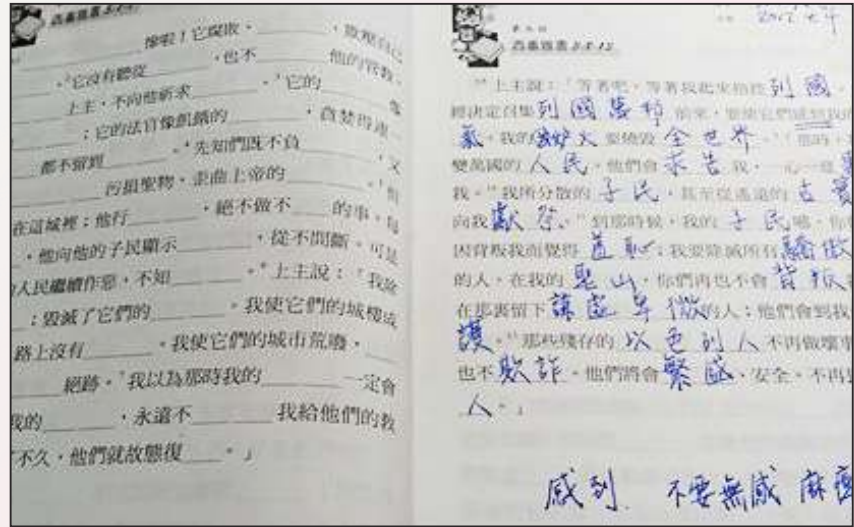 慘啦！它腐敗、
，它沒有聽從 ，也不 他的管教，
上主，不向他祈求 。³它的 像
；它的法官像飢餓的 ，貪婪得連
都不留到 。⁴先知們既不負 ，又
污損聖物，歪曲上帝的 。⁵但
在這城裡；他行 ，絕不做不 的事。每
，他向他的子民顯示 ，從不間斷。可是
人民繼續作惡，不知 。⁶上主說：「我除
；毀滅了它們的 。我使它們的城樓成
路上沒有 。我使它們的城市荒廢，
絕跡。⁷我以為那時我的 一定會
我的 ，永遠不 我給他們的教
不久，他們就故態復 。」
西番雅書3:8-13
⁸上主說：「等著吧，等著我起來指控列國。
經決定召集列國萬邦前來，要使它們感到我的
氣。我的妒火要燒毀全世界。⁹「那時，
變萬國的人民，他們會求告我，一心一意
我。¹⁰我所分散的子民，甚至從遙遠的古實
向我獻祭。¹¹到那時候，我的子民哪，你
因背叛我而覺得羞恥；我要除滅所有驕傲
的人，在我的聖山，你們再也不會背叛
在那裏留下謙虛卑微的人；他們會到我
護。¹³那些殘存的以色列人不再做壞事
也不欺詐。他們將會繁盛、安全，不再
人。」
感到 不要無感 麻